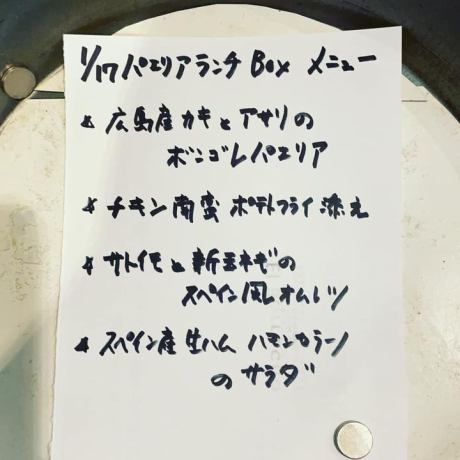 1/17 パエリアランチ Box メニュー
* 広島産カキとアサリの
ボンゴレパエリア
* チキン南蛮 ポテトフライ添え
* サトイモと新玉ネギの
スペイン風オムレツ
* スペイン産生ハム ハモンセラーノ
のサラダ